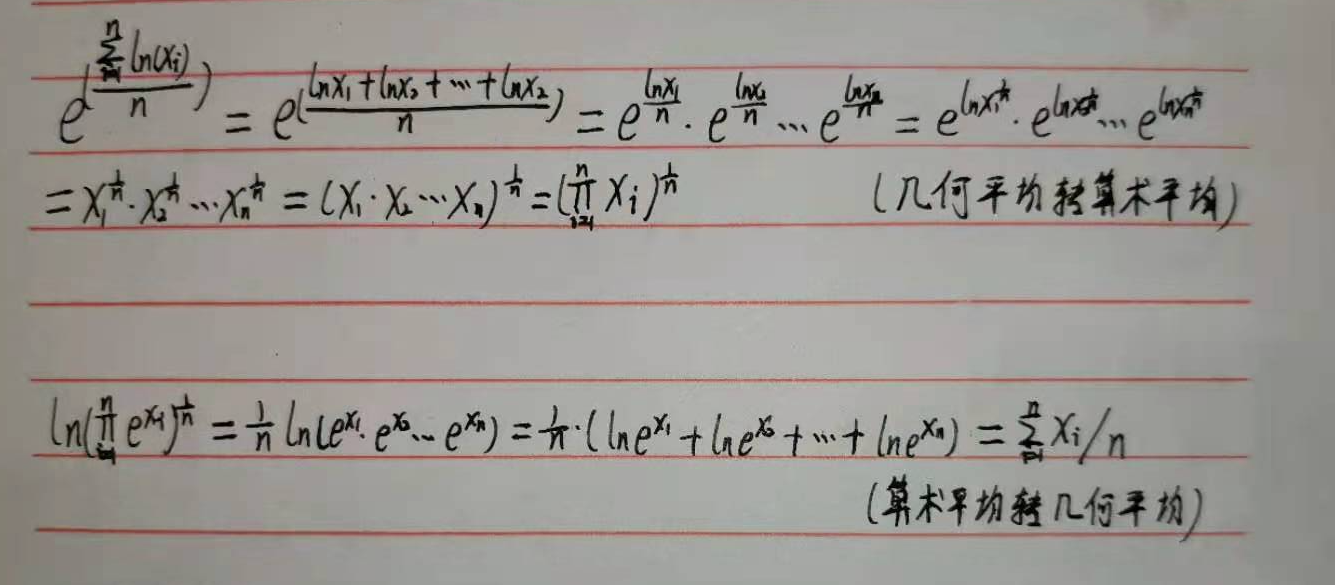 e^(\frac{\sum_{i=1}^{n} ln(x_i)}{n}) = e^(\frac{lnx_1+lnx_2+⋯+lnx_2}{n}) = e^{\frac{lnx_1}{n}}·e^{\frac{lnx_2}{n}}⋯e^{\frac{lnx_n}{n}} = e^{lnx_1^{\frac{1}{n}}}·e^{lnx_2^{\frac{1}{n}}}⋯e^{lnx_n^{\frac{1}{n}}}
= x_1^{\frac{1}{n}}·x_2^{\frac{1}{n}}⋯x_n^{\frac{1}{n}} = (x_1·x_2⋯x_n)^{\frac{1}{n}} = (\prod_{i=1}^{n} x_i)^{\frac{1}{n}} (几何平均转算术平均)
ln(\prod_{i=1}^{n} e^{x_i})^{\frac{1}{n}} = \frac{1}{n} ln(e^{x_1}·e^{x_2}⋯e^{x_n}) = \frac{1}{n}·(lne^{x_1}+lne^{x_2}+⋯+lne^{x_n}) = \sum_{i=1}^{n} x_i/n
(算术平均转几何平均)